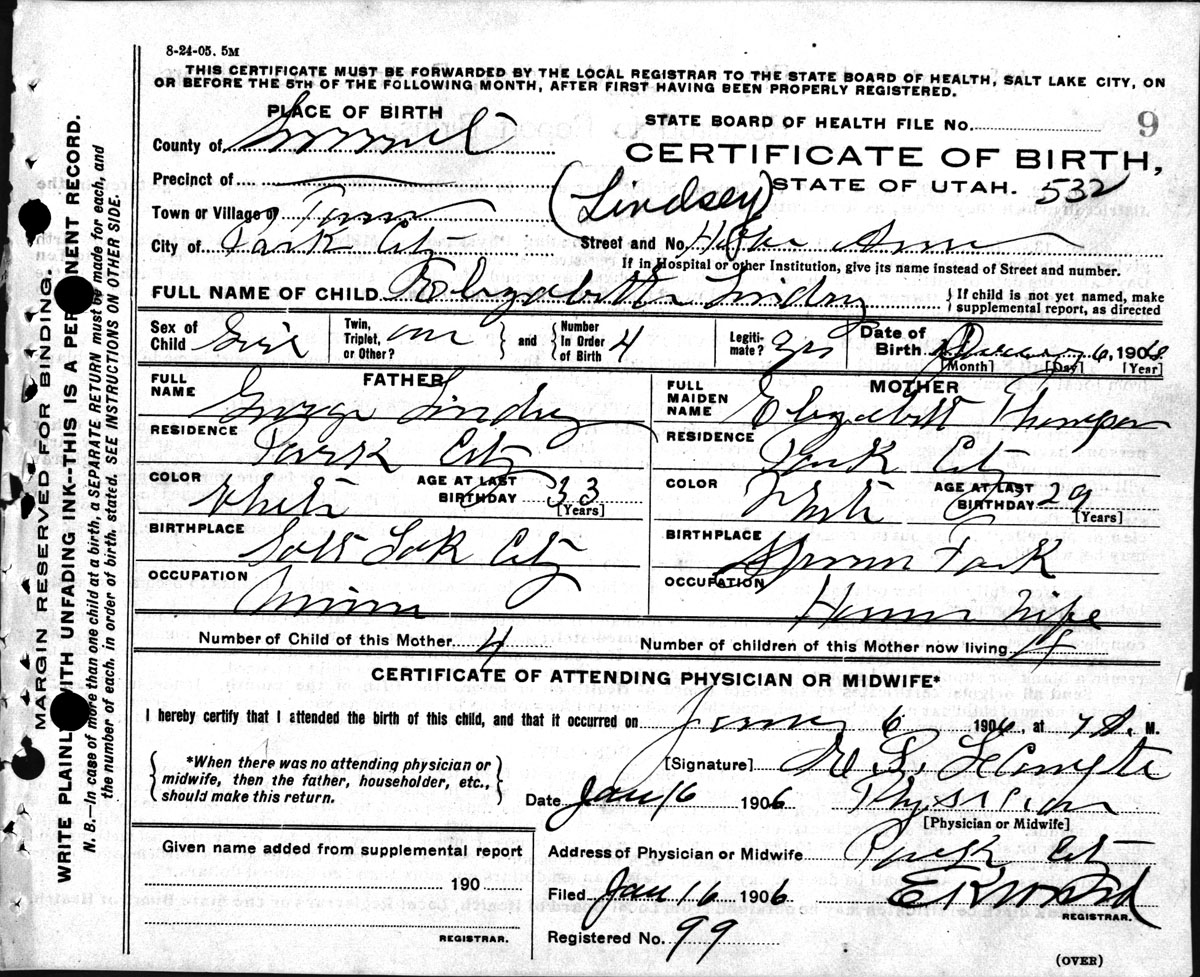 8-24-05. 5M
THIS CERTIFICATE MUST BE FORWARDED BY THE LOCAL REGISTRAR TO THE STATE BOARD OF HEALTH, SALT LAKE CITY, ON
OR BEFORE THE 5TH OF THE FOLLOWING MONTH, AFTER FIRST HAVING BEEN PROPERLY REGISTERED.
PLACE OF BIRTH
County of Summit
Precinct of
Town or Village of
City of Park City
STATE BOARD OF HEALTH FILE No. 9
CERTIFICATE OF BIRTH,
STATE OF UTAH. 532
(Lindsey)
Street and No.
If in Hospital or other Institution, give its name instead of Street and number.
FULL NAME OF CHILD Elizabeth Lindsey } If child is not yet named, make
supplemental report, as directed
Sex of Child Girl
Twin, Triplet, or Other? one } and { Number In Order of Birth 4
Legitimate? yes
Date of Birth 6, 190
[Month] [Day] [Year]
FATHER
FULL NAME George Lindsey
RESIDENCE Park City
COLOR White AGE AT LAST BIRTHDAY 33
[Years]
BIRTHPLACE Salt Lak City
OCCUPATION Miner
MOTHER
FULL MAIDEN NAME Elizabeth Thompson
RESIDENCE Park City
COLOR White AGE AT LAST BIRTHDAY 29
[Years]
BIRTHPLACE
OCCUPATION House Wife
Number of Child of this Mother 4 Number of children of this Mother now living 4
CERTIFICATE OF ATTENDING PHYSICIAN OR MIDWIFE*
I hereby certify that I attended the birth of this child, and that it occurred on January 6 1906, at 7 A. M.
*When there was no attending physician or
midwife, then the father, householder, etc.,
should make this return.
[Signature] LeCompte
Date Jan 16 1906 Physician
[Physician or Midwife]
Address of Physician or Midwife Park City
Given name added from supplemental report
190
REGISTRAR.
Filed Jan 16 1906 Ward
REGISTRAR.
Registered No. 99
(OVER)
MARGIN RESERVED FOR BINDING.
WRITE PLAINLY WITH UNFADING INK--THIS IS A PERMANENT RECORD.
N. B.—In case of more than one child at a birth, a SEPARATE RETURN must be made for each, and
the number of each, in order of birth, stated. SEE INSTRUCTIONS ON OTHER SIDE.